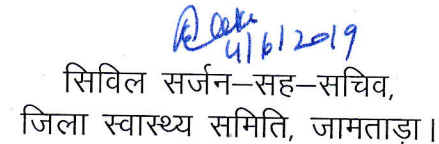 4/6/2019
सिविल सर्जन–सह–सचिव,
जिला स्वास्थ्य समिति, जामताड़ा।